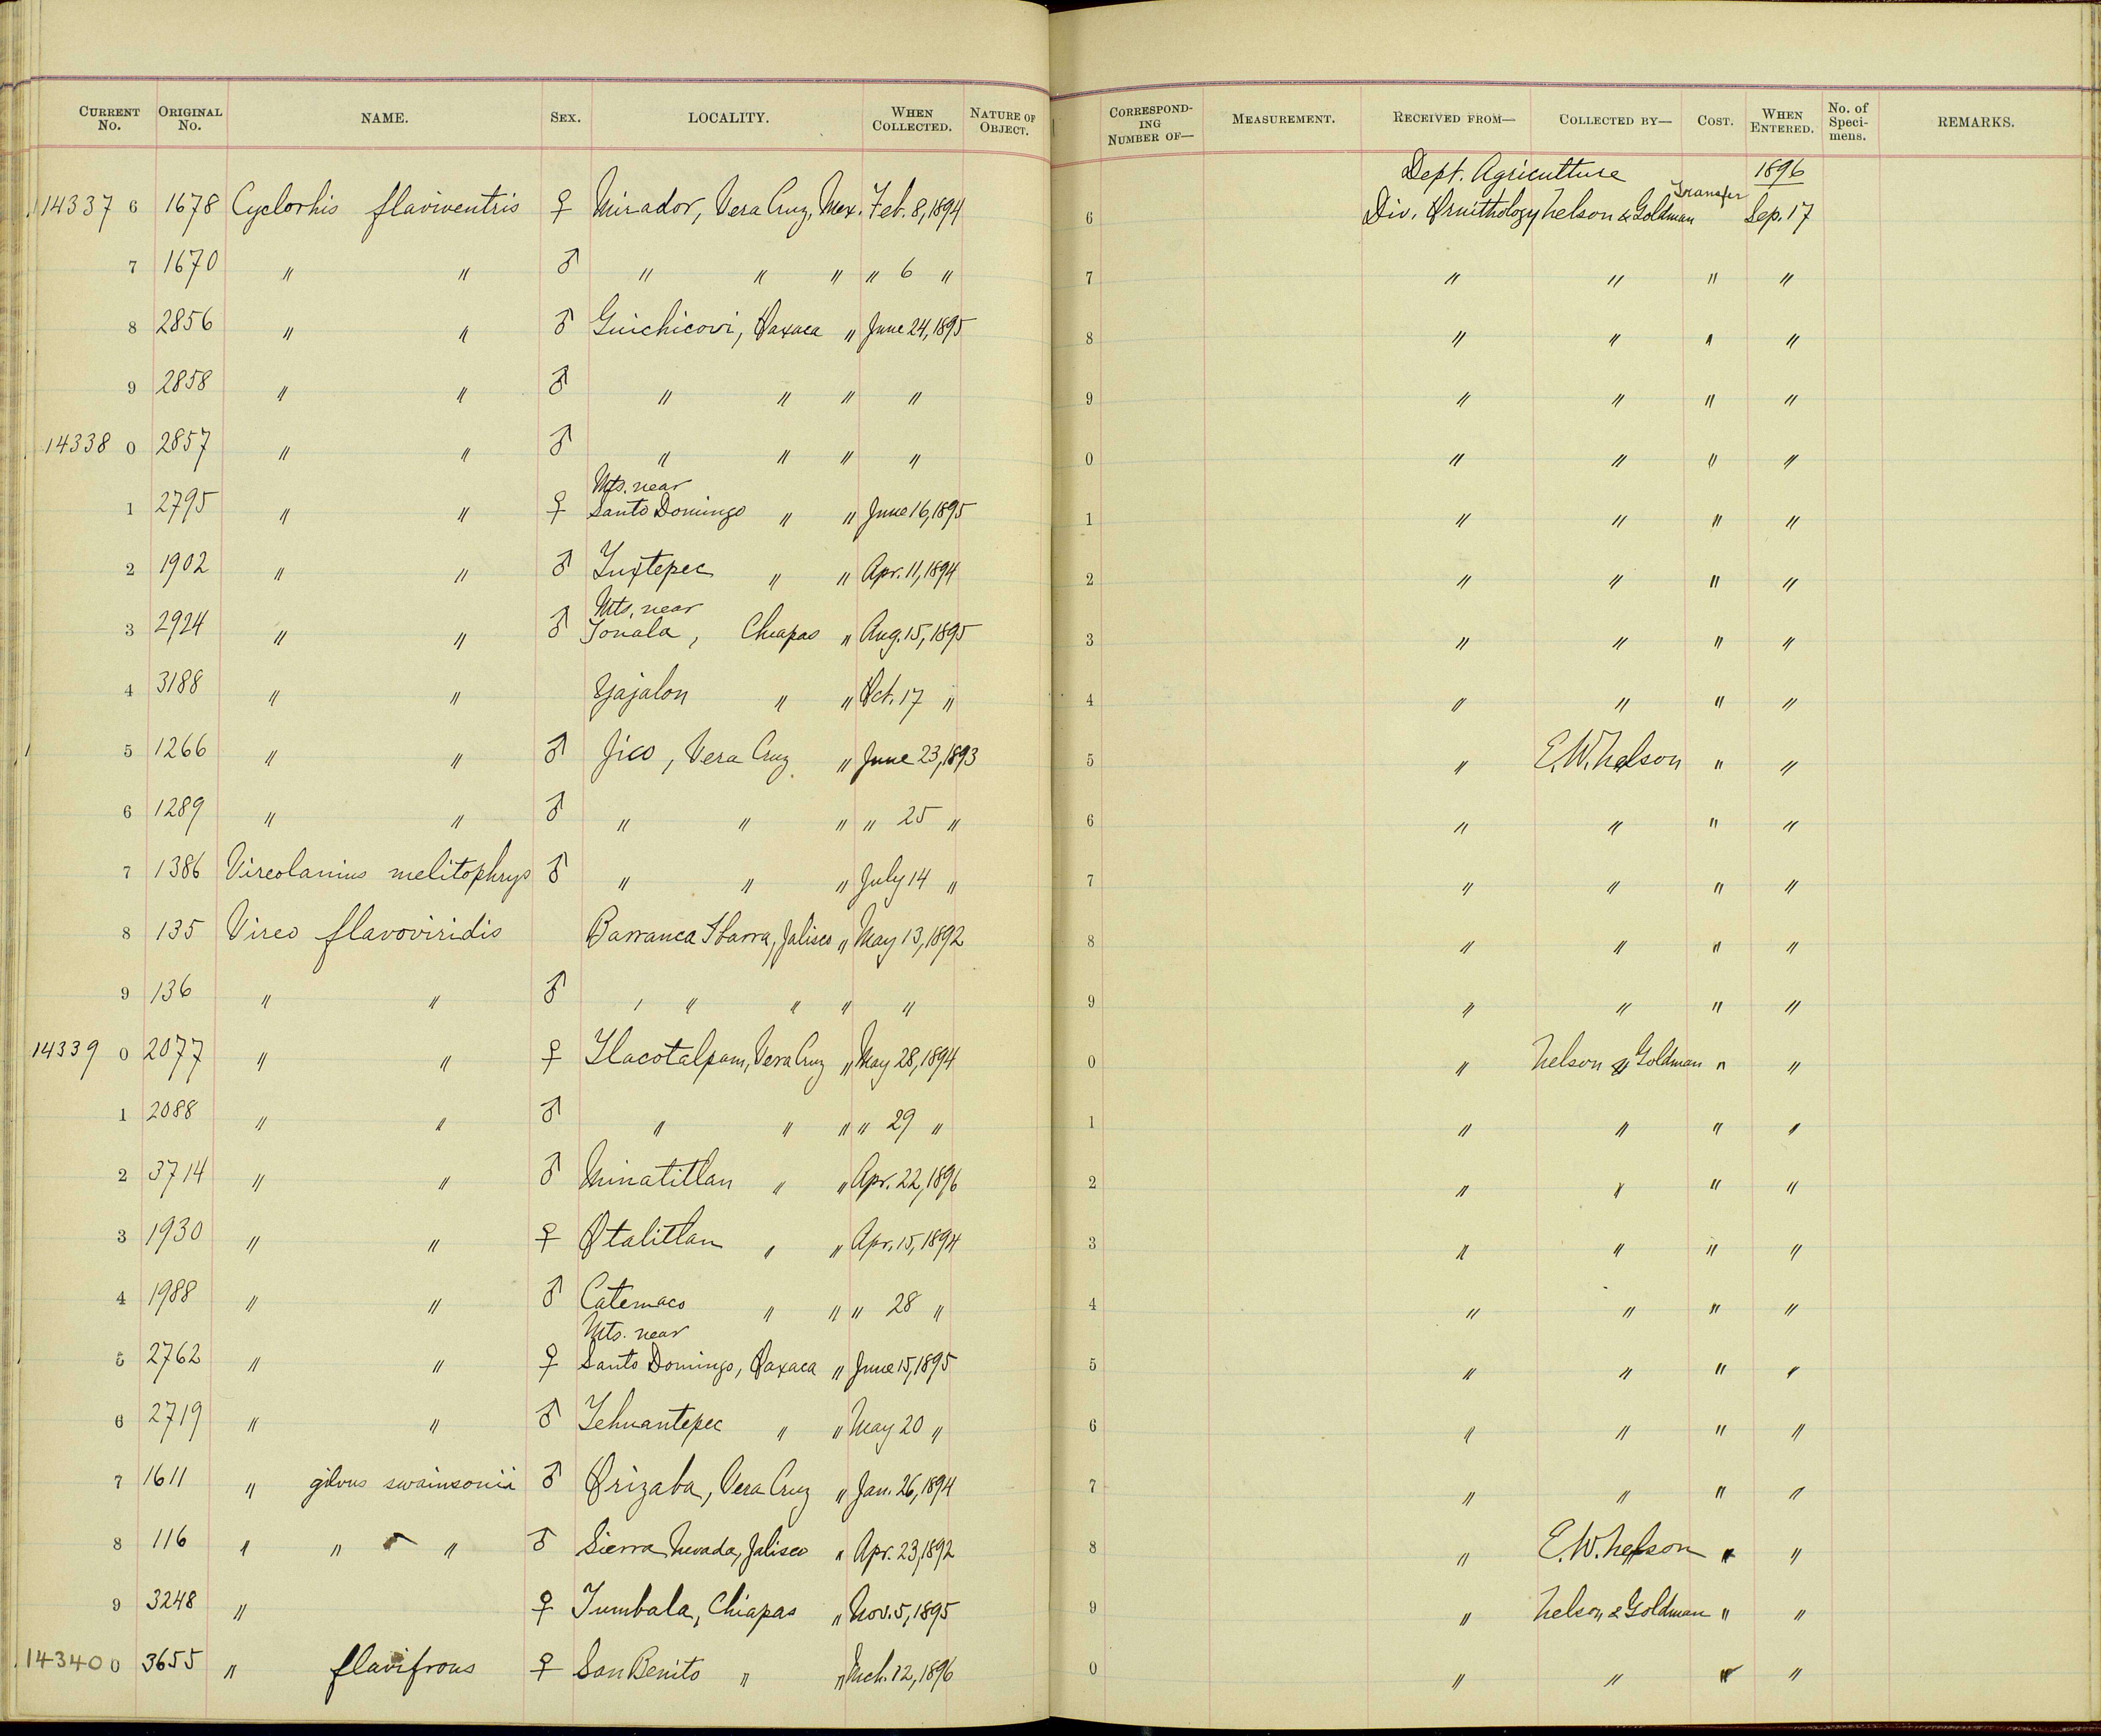 CURRENT No. ORIGINAL No. NAME. SEX. LOCALITY. WHEN COLLECTED. NATURE OF OBJECT. CORRESPONDING NUMBER OF— MEASUREMENT. RECEIVED FROM— COLLECTED BY— COST. WHEN ENTERED. No. of Specimens. REMARKS.
Dept. Agriculture 1896
14337 6 1678 Cyclorhis flaviventris ♀ Mirador, Vera Cruz, Mex. Feb. 8, 1894 6 Div. Ornithology Nelson & Goldman Transfer Sep. 17
7 1670 " " ♂ " " " " 6 " 7 " " " "
8 2856 " " ♂ Guichicovi, Oaxaca " June 24, 1895 8 " " " "
9 2858 " " ♂ " " " " 9 " " " "
14338 0 2857 " " ♂ " " " " 0 " " " "
1 2795 " " ♀ Mts. near Santo Domingo " " June 16, 1895 1 " " " "
2 1902 " " ♂ Tuxtepec " " Apr. 11, 1894 2 " " " "
3 2924 " " ♂ Mts. near Tonala, Chiapas " Aug. 15, 1895 3 " " " "
4 3188 " " Yajalon " " Oct. 17 " 4 " " " "
5 1266 " " ♂ Jico, Vera Cruz " June 23, 1893 5 " E. W. Nelson " "
6 1289 " " ♂ " " " " 25 " 6 " " " "
7 1386 Vireolanius melitophrys ♂ " " " July 14 " 7 " " " "
8 135 Vireo flavoviridis Barranca Ibarra, Jalisco " May 13, 1892 8 " " " "
9 136 " " ♂ " " " " " 9 " " " "
14339 0 2077 " " ♀ Tlacotalpam, Vera Cruz " May 28, 1894 0 " Nelson & Goldman " "
1 2088 " " ♂ " " " " 29 " 1 " " " "
2 3714 " " ♂ Minatitlan " " Apr. 22, 1896 2 " " " "
3 1930 " " ♀ Otalitlan " " Apr. 15, 1894 3 " " " "
4 1988 " " ♂ Catemaco " " " 28 " 4 " " " "
5 2762 " " ♀ Mts. near Santo Domingo, Oaxaca " June 15, 1895 5 " " " "
6 2719 " " ♂ Tehuantepec " " May 20 " 6 " " " "
7 1611 " gilvus swainsonii ♂ Orizaba, Vera Cruz " Jan. 26, 1894 7 " " " "
8 116 " " " ♂ Sierra Nevada, Jalisco " Apr. 23, 1892 8 " E. W. Nelson " "
9 3248 " ♀ Tumbala, Chiapas " Nov. 5, 1895 9 " Nelson & Goldman " "
14340 0 3655 " flavifrons ♀ San Benito " " Mch. 12, 1896 0 " " " "